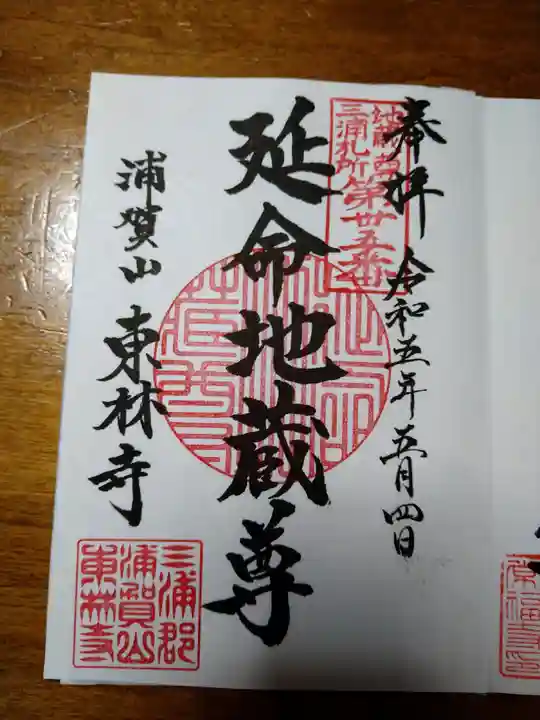 奉拝 令和五年五月四日
地蔵尊
三浦札所
第卅五番
延命地蔵尊
浦賀山 東林寺
三浦郡
浦賀山
東林寺